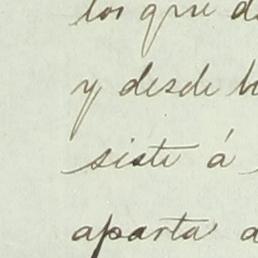 los que
y desde
siste á
aparta